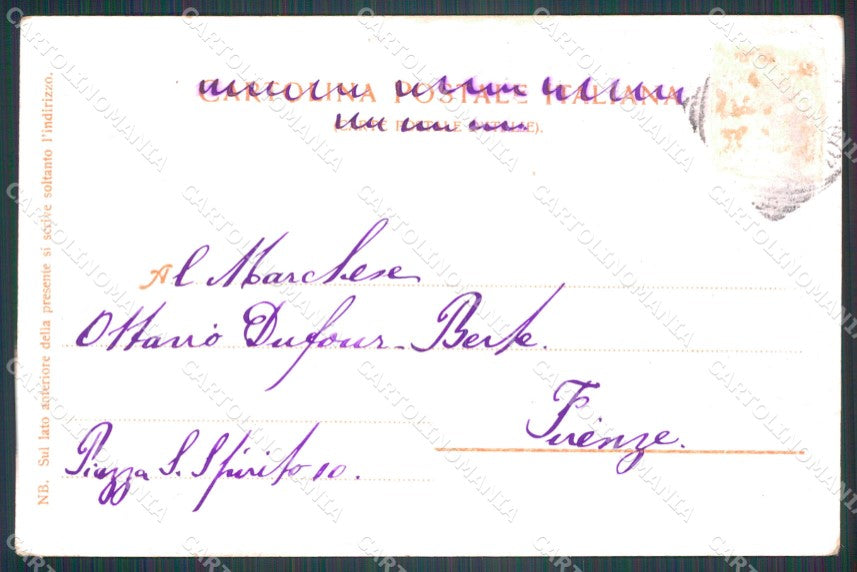 CARTOLINA POSTALE ITALIANA
(CARTE POSTALE ITALIE).
Al Marchese
Ottavio Dufour-Berte.
Firenze.
Piazza S. Spirito 10.
NB. Sul lato anteriore della presente si scrive soltanto l'indirizzo.
CARTOLINOMANIA